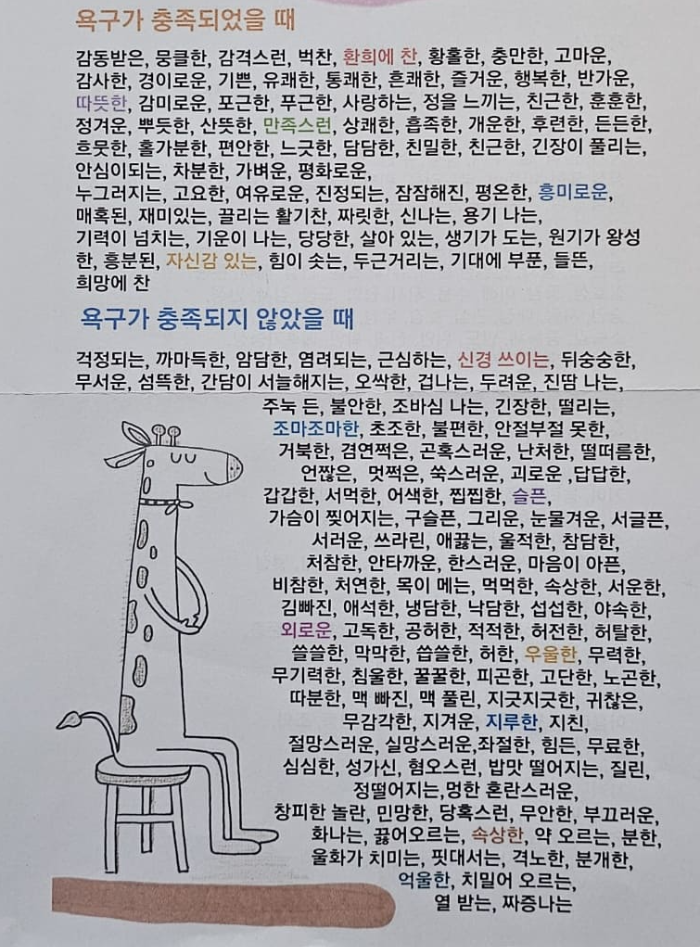 욕구가 충족되었을 때
감동받은, 뭉클한, 감격스런, 벅찬, 환희에 찬, 황홀한, 충만한, 고마운,
감사한, 경이로운, 기쁜, 유쾌한, 통쾌한, 흔쾌한, 즐거운, 행복한, 반가운,
따뜻한, 감미로운, 포근한, 푸근한, 사랑하는, 정을 느끼는, 친근한, 훈훈한,
정겨운, 뿌듯한, 산뜻한, 만족스런, 상쾌한, 흡족한, 개운한, 후련한, 든든한,
흐뭇한, 홀가분한, 편안한, 느긋한, 담담한, 친밀한, 친근한, 긴장이 풀리는,
안심이되는, 차분한, 가벼운, 평화로운,
누그러지는, 고요한, 여유로운, 진정되는, 잠잠해진, 평온한, 흥미로운,
매혹된, 재미있는, 끌리는 활기찬, 짜릿한, 신나는, 용기 나는,
기력이 넘치는, 기운이 나는, 당당한, 살아 있는, 생기가 도는, 원기가 왕성
한, 흥분된, 자신감 있는, 힘이 솟는, 두근거리는, 기대에 부푼, 들뜬,
희망에 찬
욕구가 충족되지 않았을 때
걱정되는, 까마득한, 암담한, 염려되는, 근심하는, 신경 쓰이는, 뒤숭숭한,
무서운, 섬뜩한, 간담이 서늘해지는, 오싹한, 겁나는, 두려운, 진땀 나는,
주눅 든, 불안한, 조바심 나는, 긴장한, 떨리는,
조마조마한, 초조한, 불편한, 안절부절 못한,
거북한, 겸연쩍은, 곤혹스러운, 난처한, 떨떠름한,
언짢은, 멋쩍은, 쑥스러운, 괴로운 ,답답한,
갑갑한, 서먹한, 어색한, 찝찝한, 슬픈,
가슴이 찢어지는, 구슬픈, 그리운, 눈물겨운, 서글픈,
서러운, 쓰라린, 애끓는, 울적한, 참담한,
처참한, 안타까운, 한스러운, 마음이 아픈,
비참한, 처연한, 목이 메는, 먹먹한, 속상한, 서운한,
김빠진, 애석한, 냉담한, 낙담한, 섭섭한, 야속한,
외로운, 고독한, 공허한, 적적한, 허전한, 허탈한,
쓸쓸한, 막막한, 씁쓸한, 허한, 우울한, 무력한,
무기력한, 침울한, 꿀꿀한, 피곤한, 고단한, 노곤한,
따분한, 맥 빠진, 맥 풀린, 지긋지긋한, 귀찮은,
무감각한, 지겨운, 지루한, 지친,
절망스러운, 실망스러운,좌절한, 힘든, 무료한,
심심한, 성가신, 혐오스런, 밥맛 떨어지는, 질린,
정떨어지는,멍한 혼란스러운,
창피한 놀란, 민망한, 당혹스런, 무안한, 부끄러운,
화나는, 끓어오르는, 속상한, 약 오르는, 분한,
울화가 치미는, 핏대서는, 격노한, 분개한,
억울한, 치밀어 오르는,
열 받는, 짜증나는